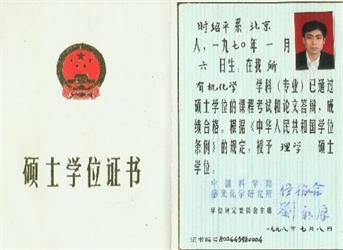 硕士学位证书
时绍平系 北京
人,一九七〇年 一 月
六 日生。在我 所
有机化学 学科(专业)已通过
硕士学位的课程考试和论文答辩,成
绩合格。根据《中华人民共和国学位
条例》的规定,授予 理学 硕士
学位。
中国科学院
感光化学研究所
学位评定委员会主席
一九九八年七月八日
证书编号